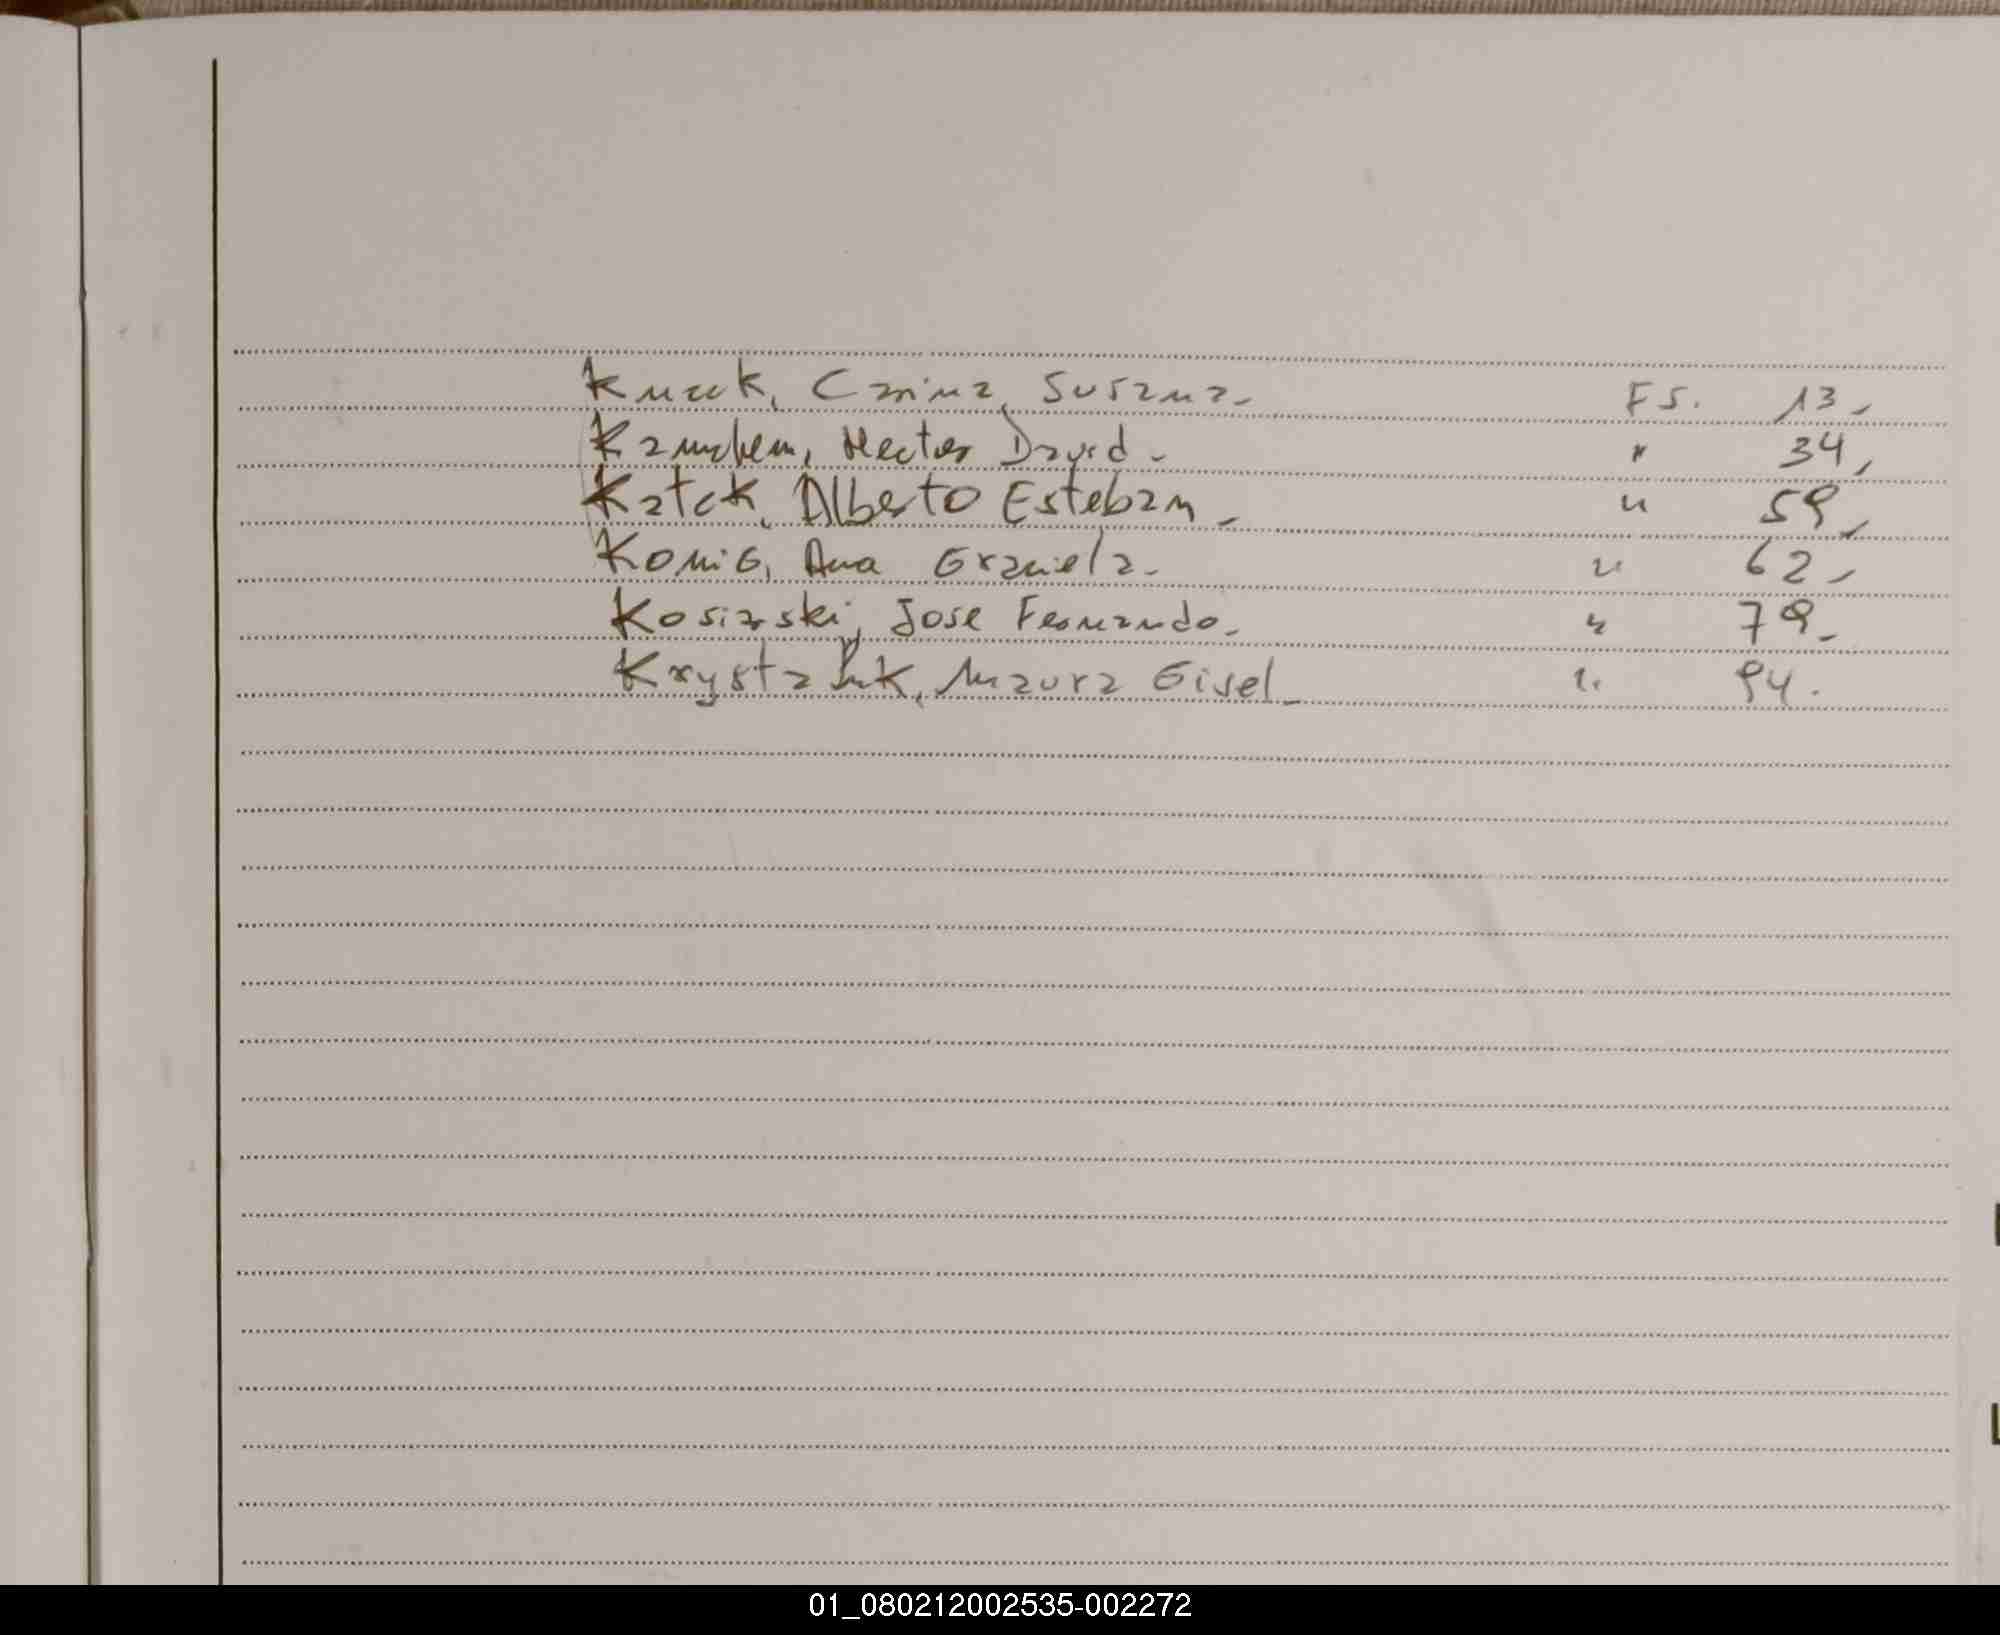 Kucck, Carina Susana. FS. 13.
Kamchem, Hector David. " 34.
Katck, Alberto Esteban. " 59.
Konig, Ana Graciela. " 62.
Kosiarski, Jose Fernando. " 79.
Maura Gisel. " 94.
01_080212002535-002272